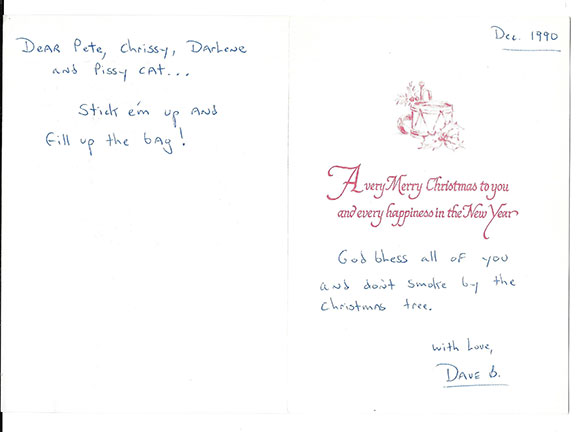 Dear Pete, Chrissy, Darlene
and Pissy Cat...
Stick e'm up and
fill up the bag!
Dec. 1990
A very Merry Christmas to you
and every happiness in the New Year
God bless all of you
and don't smoke by the
Christmas tree.
with Love,
Dave B.